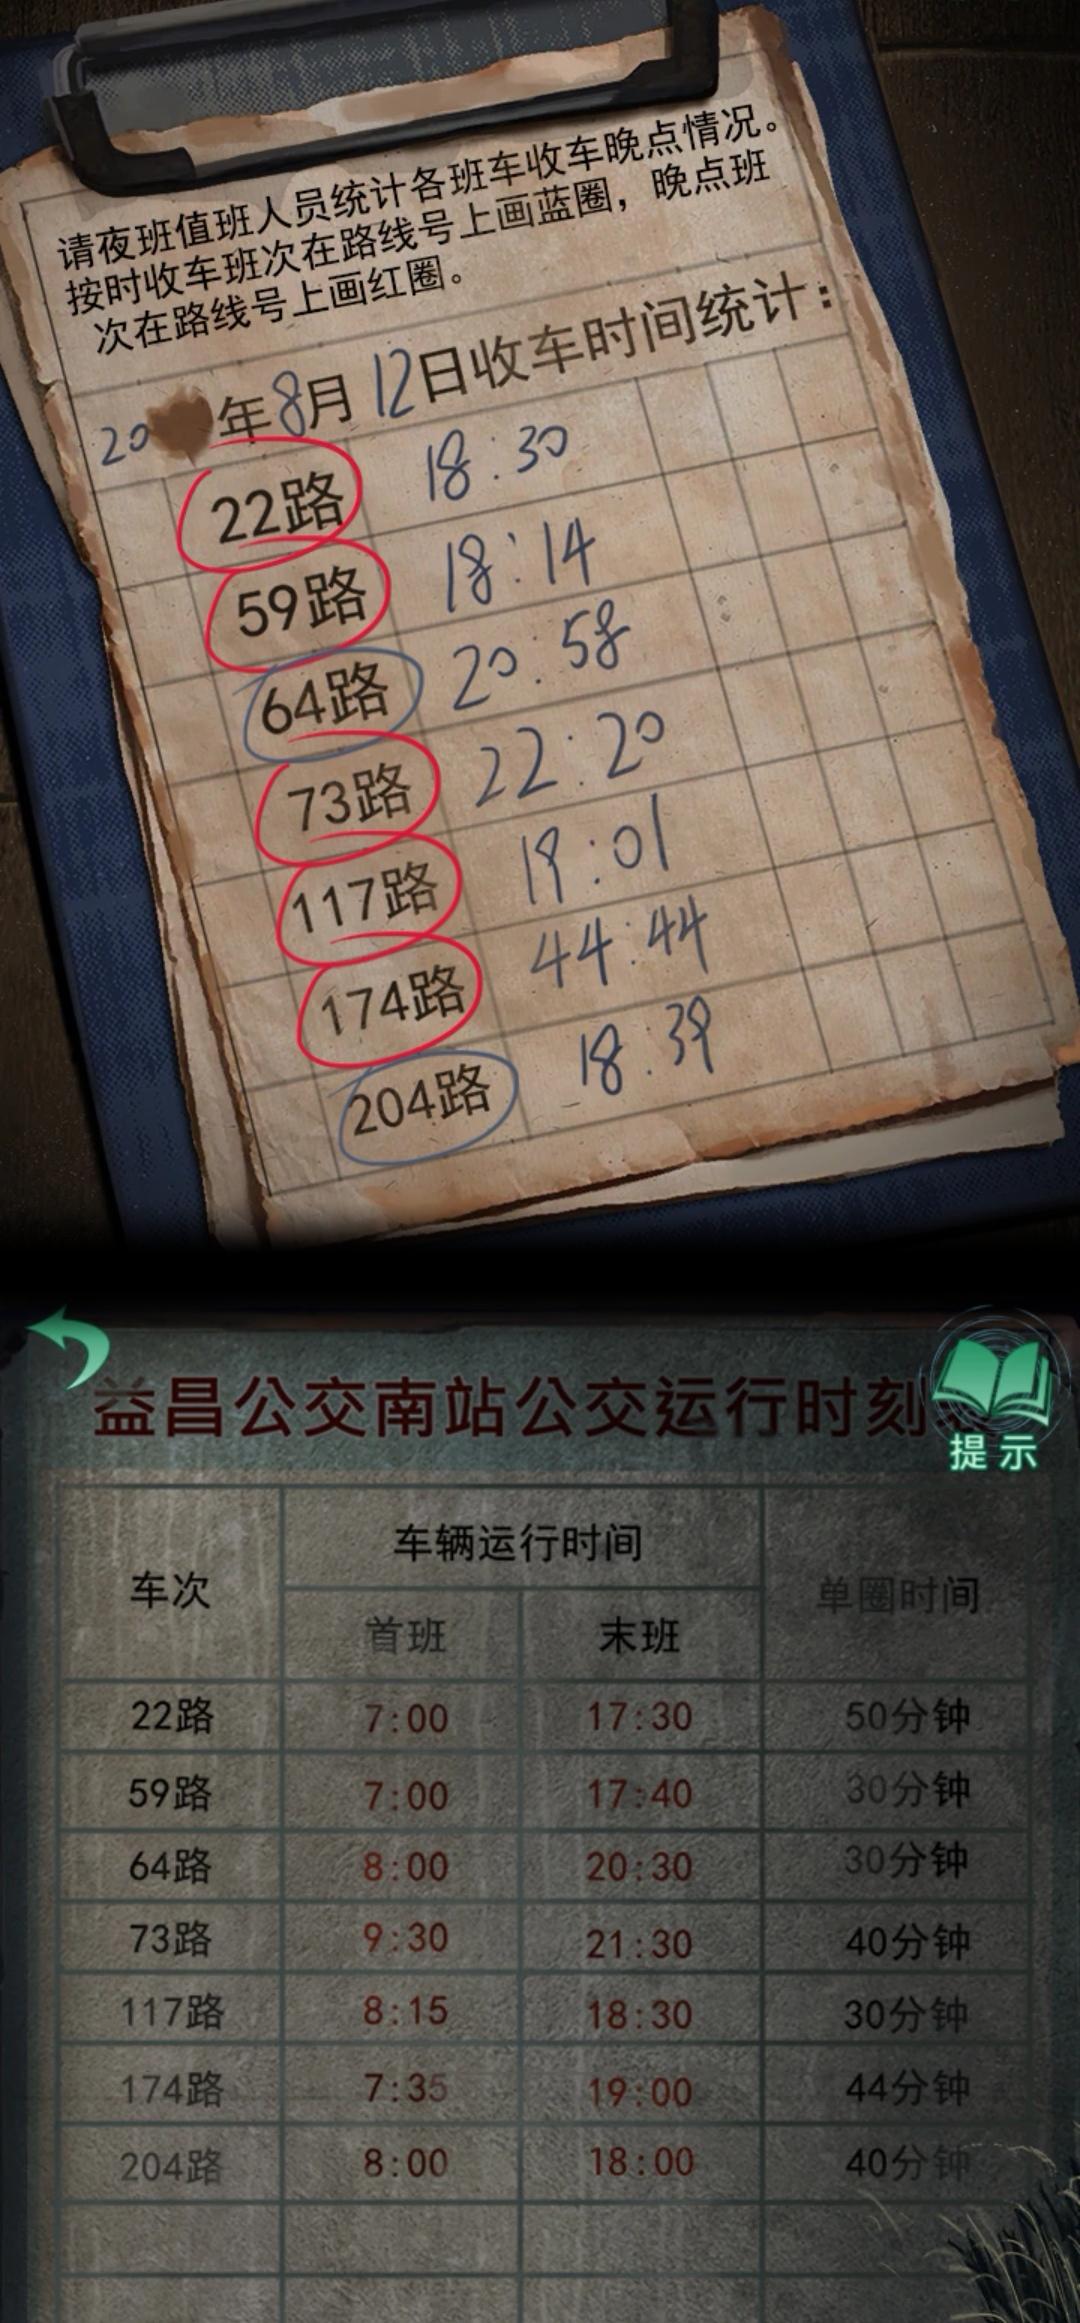 请夜班值班人员统计各班车收车晚点情况。
按时收车班次在路线号上画蓝圈，晚点班
次在路线号上画红圈。
20 年8月12日收车时间统计：
22路 18:30
59路 18:14
64路 20:58
73路 22:20
117路 19:01
174路 44:44
204路 18:39
益昌公交南站公交运行时刻
提示
车次 车辆运行时间 单圈时间
首班 末班
22路 7:00 17:30 50分钟
59路 7:00 17:40 30分钟
64路 8:00 20:30 30分钟
73路 9:30 21:30 40分钟
117路 8:15 18:30 30分钟
174路 7:35 19:00 44分钟
204路 8:00 18:00 40分钟